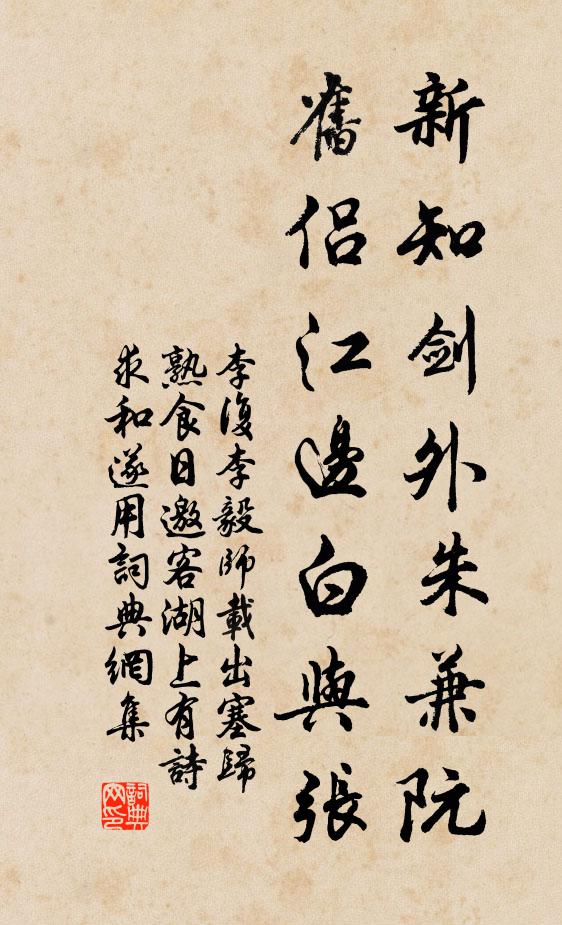 新知劍外朱兼阮
舊侶江邊白與張
李復李毅師載出塞歸
熟食日邀客湖上有詩
求和遂用詞典網集
詞典
网印